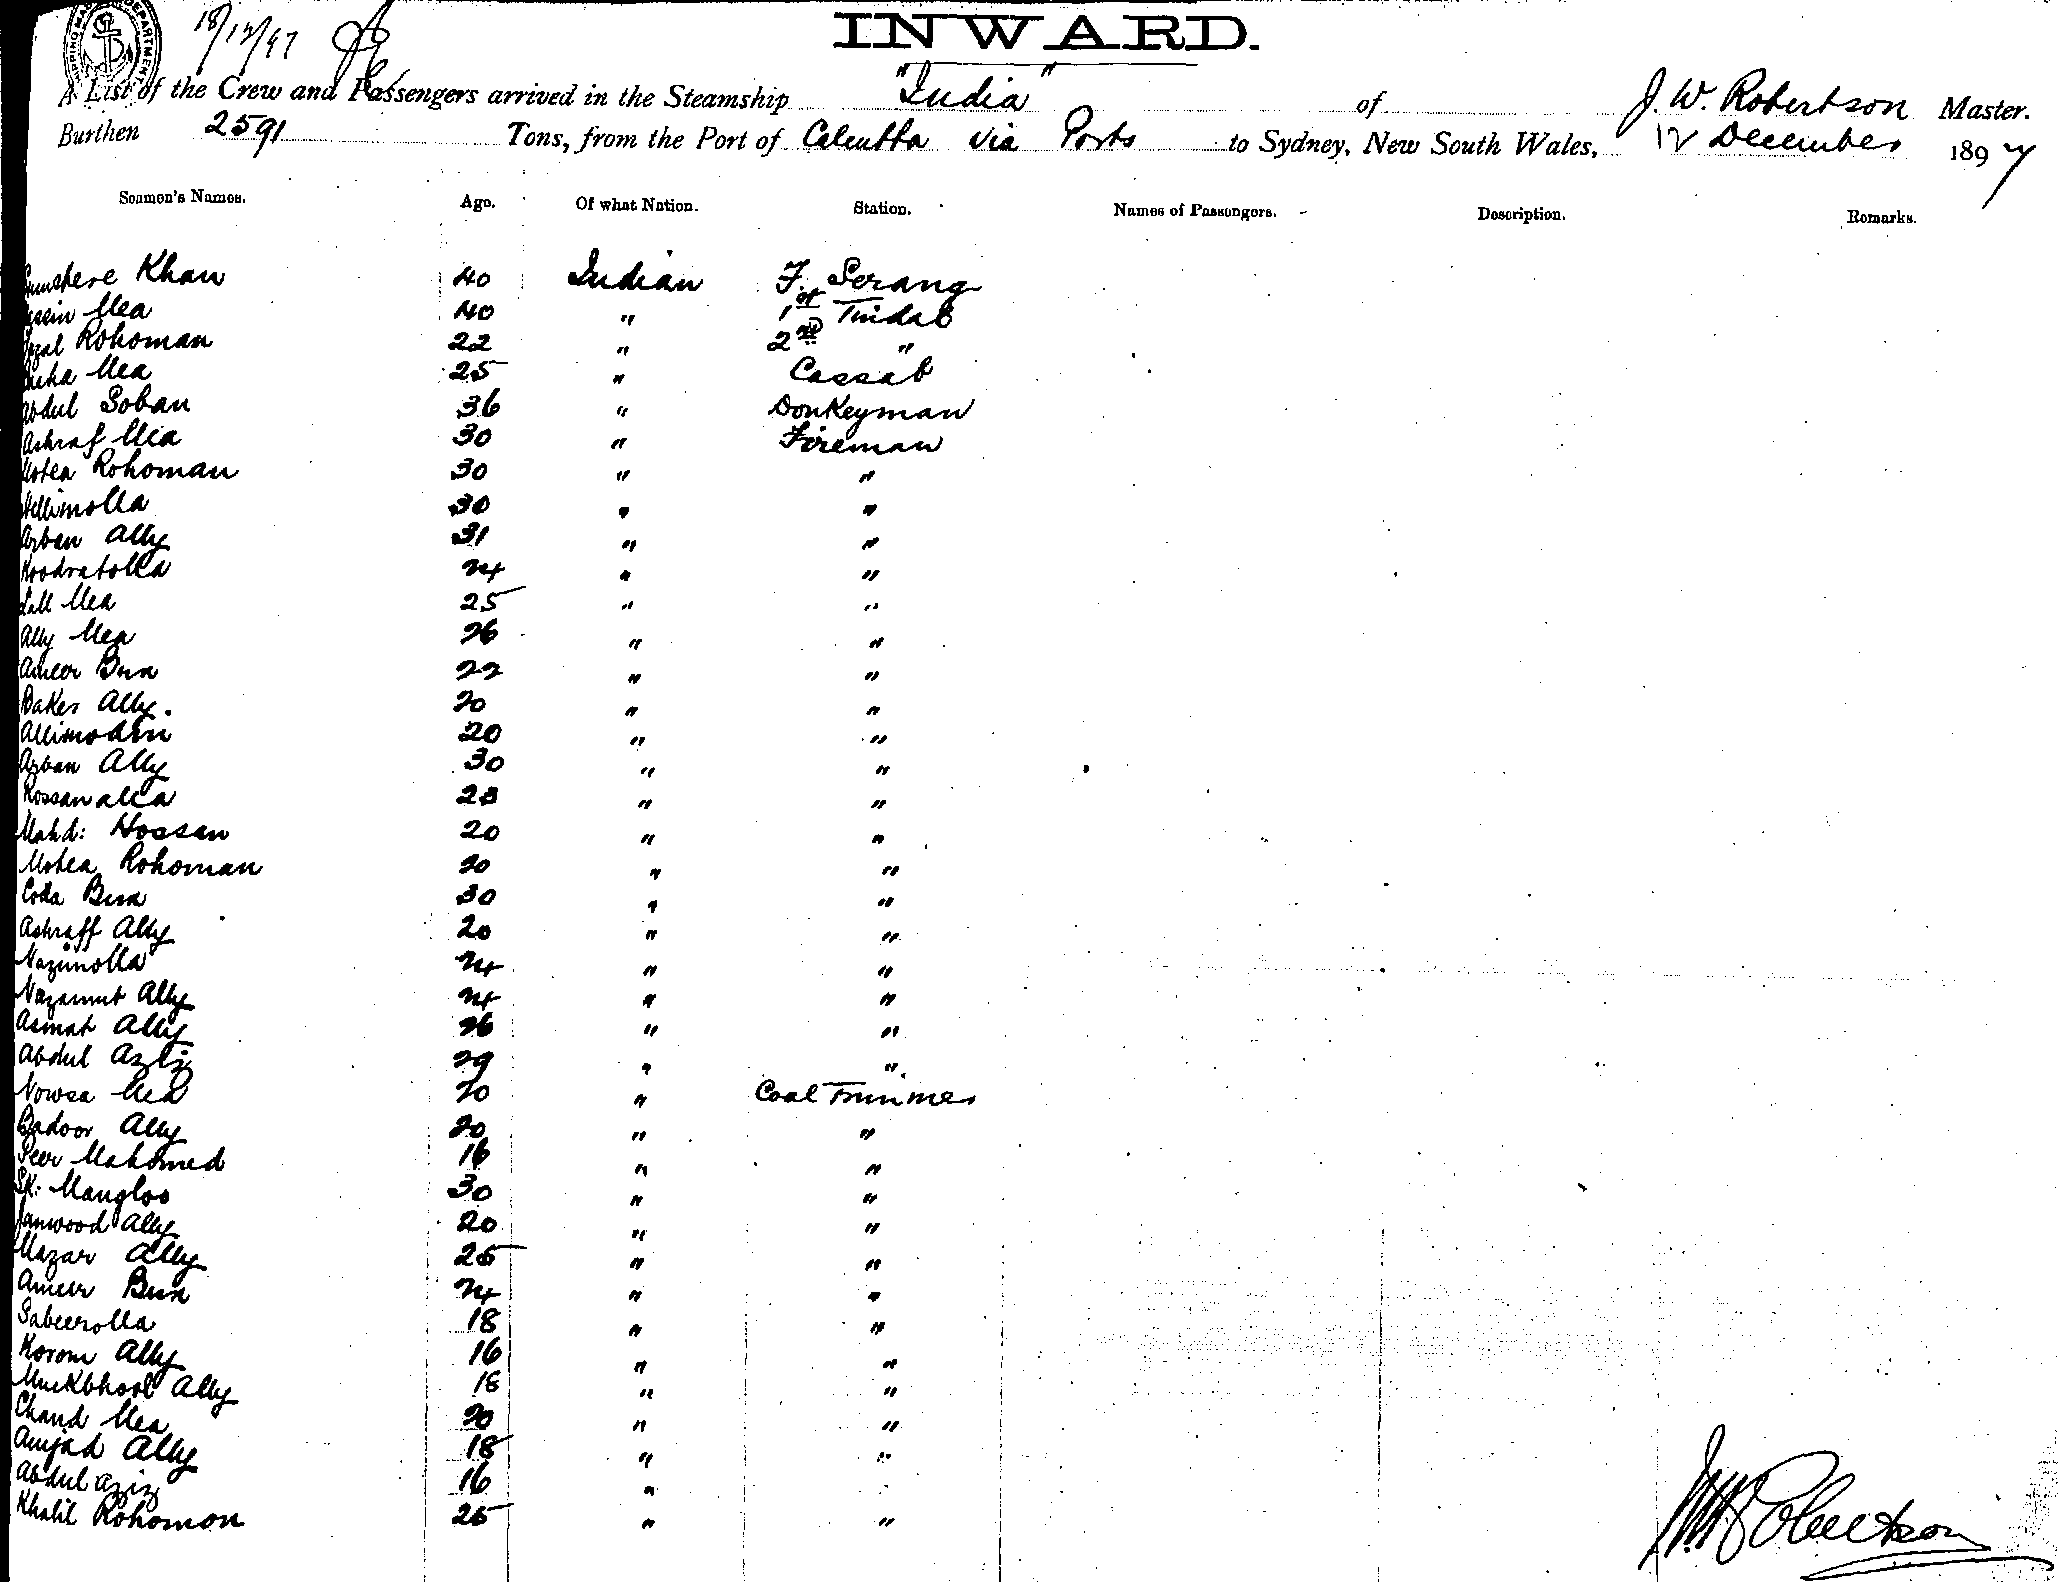 18/12/97
INWARD.
A List of the Crew and Passengers arrived in the Steamship "India" of J. W. Robertson Master.
Burthen 2591 Tons, from the Port of Calcutta via Ports to Sydney, New South Wales, 12 December 1897
Seamen's Names. Age. Of what Nation. Station. Names of Passengers. Description. Remarks.
Khan 40 Indian F. Serang
Mea 40 " 1st Tindal
Rohoman 22 " 2nd "
Mea 25 " Cassab
Abdul Soban 36 " Donkeyman
Ashraf Mea 30 " Fireman
Motea Rohoman 30 " "
30 " "
Arban Ally 31 " "
Koodratolla 24 " "
Lall Mea 25 " "
Ally Mea 26 " "
Ameer Bux 22 " "
Baker Ally. 20 " "
Allimodin 20 " "
Arban Ally 30 " "
Rossanalla 23 " "
Mahd: Hossen 20 " "
Motea Rohoman 20 " "
Coda Bux 30 " "
Ashraff Ally 20 " "
Nazimolla 24 " "
Nazamut Ally 24 " "
Asmat Ally 26 " "
Abdul Aziz 29 " "
Nowsa Mea 20 " Coal Trimmer
Badoor Ally 20 " "
Peer Mahomed 16 " "
Sk: Mangloo 30 " "
Ally 20 " "
Mazar Ally 25 " "
Ameer Bux 24 " "
Sabeerolla 18 " "
Korom Ally 16 " "
Muckbhool Ally 18 " "
Chand Mea 20 " "
Amjad Ally 18 " "
Abdul Aziz 16 "
Khalil Rohomon 25 " "
J W Robertson